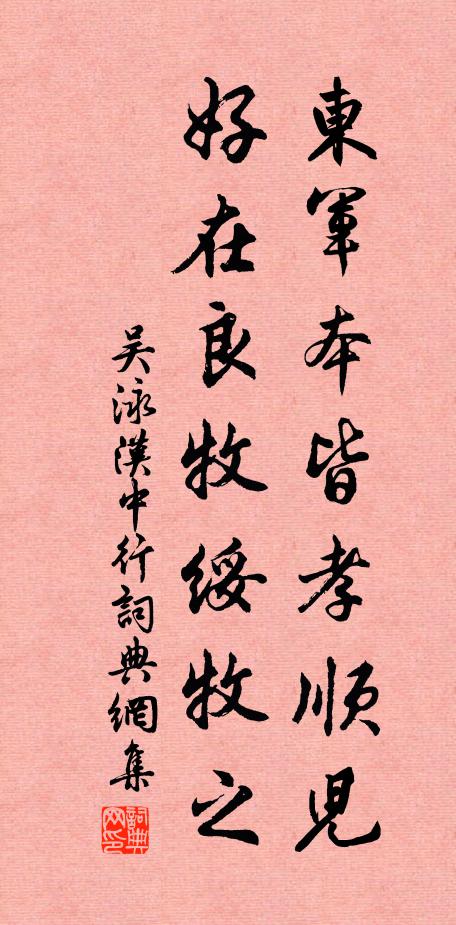 東軍本皆孝順児
好在良牧綏牧之
吴泳漢中行詞典網集
詞典网印